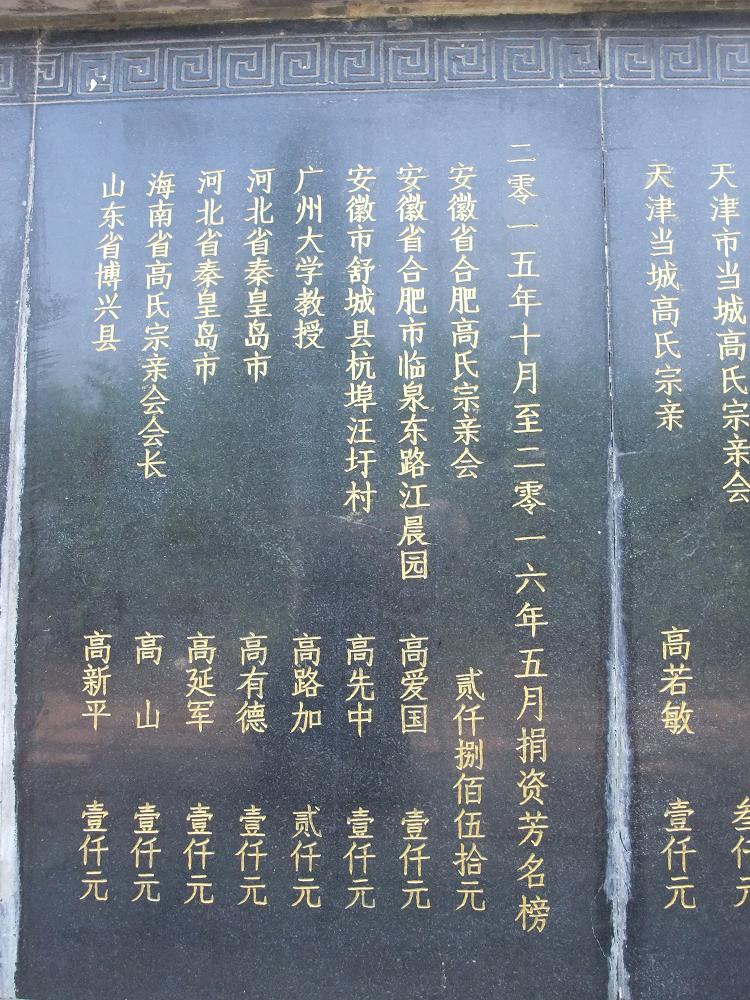 天津市当城高氏宗亲会 叁仟元
天津当城高氏宗亲 高若敏 壹仟元
二零一五年十月至二零一六年五月捐资芳名榜
安徽省合肥高氏宗亲会 贰仟捌佰伍拾元
安徽省合肥市临泉东路江晨园 高爱国 壹仟元
安徽市舒城县杭埠汪圩村 高先中 壹仟元
广州大学教授 高路加 贰仟元
河北省秦皇岛市 高有德 壹仟元
河北省秦皇岛市 高延军 壹仟元
海南省高氏宗亲会会长 高山 壹仟元
山东省博兴县 高新平 壹仟元